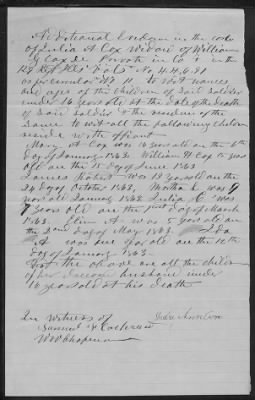 Additional Evidence in the case
of Julia A Cox Widow of William
G Cox Private in Co in the
Vols No 44,681
to wit names
and ages of the children of said soldier
under 16 years old at the date of the death
of said soldier & the residence of the
same to wit all the following children
reside with affiant
Mary A Cox was 14 years old on the 6th
day of January 1863. William H Cox 15 years
old on the 11 day of June 1863
James Robert was 13 years old on the
29 day of October 1863, Martha L was 9
years old January 1863 Julia C was
7 years old on the 1st day of March
1863. A was 5 years old on
the 2nd day of May 1863. Ida
A was one year old on the 12th
day of January 1863
That the above are all the children
of her husband under
16 years old at his death
In witness of
Samuel H Cockerum
W W Chapman